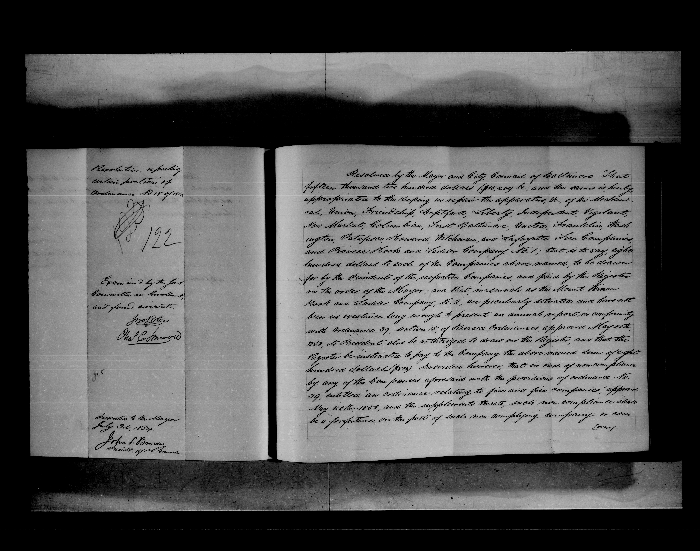 Resolution
certain
Ordinance No
192
Examined by the Joint
Committee on
and found correct.
Presented to the Mayor
July
John
Resolved by the Mayor and City Council of Baltimore That
fifteen thousand two hundred dollars be and the same is hereby
appropriated to the keeping in repair the apparatus, &c. of the Mechan-
ical, Union, Friendship, Deptford, Liberty, Independent, Vigilant,
New Market, Columbian, First Baltimore, United, Franklin, Wash-
ington, Patapsco, Howard, Watchman, and Lafayette Fire Companies
and Pioneer Hook and Ladder Company No 1, that is to say eight
hundred dollars to each of the Companies above named, to be drawn
for by the Presidents of the respective Companies, and paid by the Register
on the order of the Mayor, and that inasmuch as the Mount Vernon
Hook and Ladder Company No 2, are peculiarly situated and have not
been in existence long enough to present an annual report in conformity
with Ordinance 39, section 15 of Revised Ordinances approved May
its President also be authorized to draw on the Register, and that the
Register be instructed to pay to the Company the above named sum of eight
hundred dollars Provided however, that in case of noncompliance
by any of the Companies aforesaid with the provisions of ordinance No
39, entitled an ordinance relating to fires and fire companies, approved
May and the supplements thereto, such non compliance shall
be a forfeiture on the part of such non complying company or com-